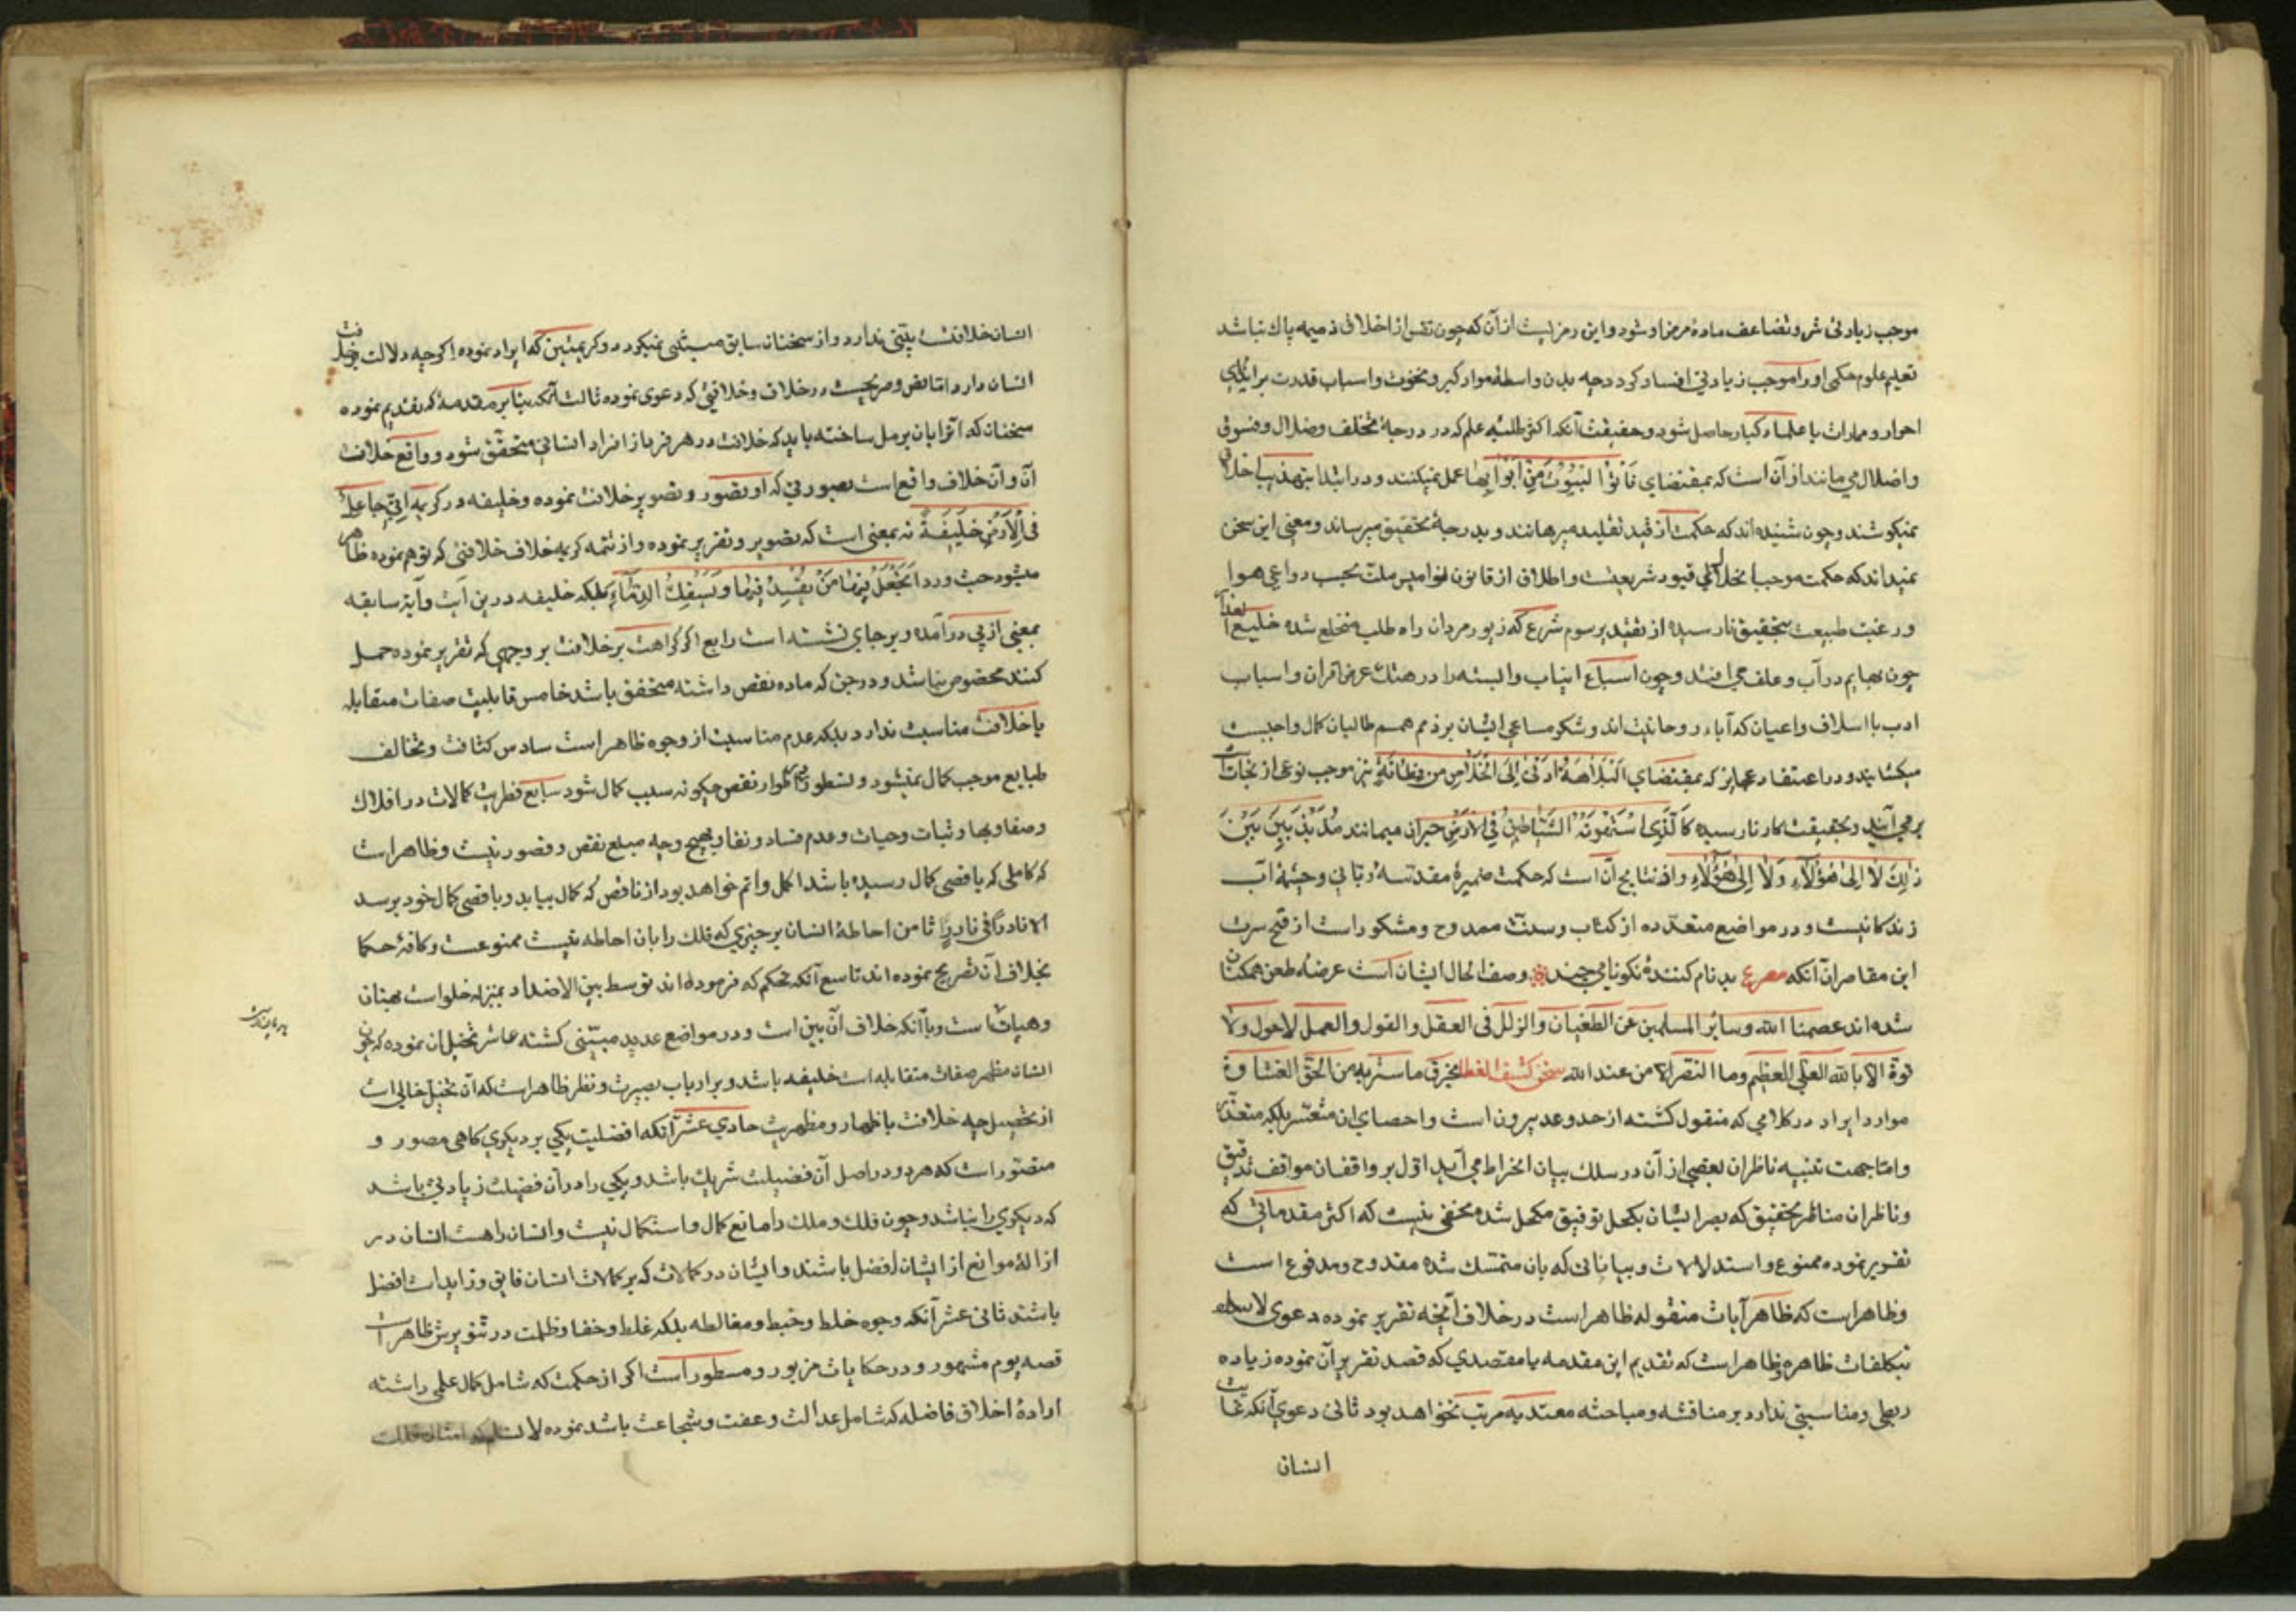 موجب زیادتی شر و تضاعف مادهٔ مرض او شود و این رمزیست از آن که چون نفس از اخلاق ذمیمه پاک نباشد
تعلیم علوم حکمی او را موجب زیادتی افساد کردد چه بدن واسطهٔ مواد کبر و نخوت و اسباب قدرت بر ایذای
احرار و ممارات با علما و کبار حاصل شود و حقیقت آنکه اکثر طلبهٔ علم که در درجهٔ تخلف و ضلال و فسوق
و اضلال می مانند از آن است که بمقتضای فَأتُوا البُیُوتَ مِنْ اَبْوابِها عمل نمیکنند و در ابتدا بتهذیب اخلاق
نمیکوشند و چون شنیده اند که حکمت از قید تقلید میرهانند و بدرجهٔ تحقیق میرساند و معنی این سخن
نمیداند که حکمت موجب انحلال قیود شریعت و اطلاق از قانون نوامیس ملت بحسب دواعی هوا
و رغبت طبیعت بتحقیق نارسیده از تقید برسوم شرع که زیور مردان راه طلب منخلع شده خلیع العذار
چون بهایم در آب و علف می افتند و چون اسباع انیاب و السنه را در هتک عرض اقران و اسباب
ادب با اسلاف و اعیان که آباء روحانیت اند و شکر مساعی ایشان بر ذمم همم طالبان کمال واجبست
میکشایند و در اعتقاد عجایز که بمقتضای البَلاهَةُ اَدْنی اِلَی الخَلاصِ مِن فِطانَةٍ نیز موجب نوعی از نجات
بر می آیند و بحقیقت کار نارسیده کَالَّذِی اسْتَهْوَتْهُ الشَّیَاطِینُ فِی الاَرْضِ حیران میمانند مُذَبْذَبِینَ بَیْنَ
ذٰلِکَ لا اِلی هٰؤُلآءِ وَلا اِلی هٰؤُلآءِ و از نتایج آن است که حکمت ضمیرهٔ مقدسهٔ ربانی و چشمهٔ آب
زندکانیست و در مواضع متعدده از کتاب و سنت ممدوح و مشکور است از قبح سیرت
این مقاصران آنکه مصرع بدنام کنندهٔ نکونامی چند وصف الحال ایشان است عرضه طعن همکنان
شده اند عصمنا الله و سائر المسلمین عن الطغیان و الزلل فی العقل و القول و العمل لا حول و لا
قوة الا بالله العلی العظیم و ما النصر الا من عند الله سخن کشف الغطا بخرق ما ستر به من الحق الغشاوة
موارد ایراد در کلامی که منقول کشته از حد و عد بیرون است و احصای ان متعسر بلکه متعذر
و اما جهت تنبیه ناظران بعضی از آن در سلک بیان انخراط می آید اول بر واقفان مواقف تدقیق
و ناظران مناظر تحقیق که بصر ایشان بکحل توفیق مکحل شد مخفی نیست که اکثر مقدماتی که
تقریر نموده ممنوع و استدلالات و بیاناتی که بان متمسک شده مقدوح و مدفوع است
و ظاهر است که ظاهر آیات منقوله ظاهر است در خلاف آنچه تقریر نموده دعوی
تکلفات ظاهره و ظاهر است که تقدیم این مقدمه با مقصدی که قصد تقریر آن نموده زیاده
ربطی و مناسبتی ندارد بر مناقشه و مباحثه معتد به مرتب نخواهد بود ثانی دعوی آنکه غایت
انسان
انسان خلافت یقینی ندارد و از سخنان سابق مبتنی نمیکردد و کریمتین که ایراد نموده اکرچه دلالت بر خلافت
انسان دارد اما نص و صریحست در خلاف و خلافتی که دعوی نموده ثالث آنکه بنا بر مقدمهٔ که تقدیم نموده
سخنان که انرا بان برمل ساخته باید که خلافت در هر فرد از افراد انسانی متحقق شود و واقع خلاف
آن و آن خلاف واقع است بصورتی که او تصور و تصویر خلافت نموده و خلیفه در کریمه اِنّی جاعِلٌ
فِی الاَرْضِ خَلیفَةً نه بمعنی است که تصویر و تقریر نموده و از تتمه کریمه خلاف خلافتی که توهم نموده ظاهر
میشود حیث ورد اَتَجْعَلُ فِیها مَنْ یُفْسِدُ فِیها وَ یَسْفِکُ الدِّماءَ بلکه خلیفه درین آیت و آیهٔ سابقه
بمعنی از پی درآمده و بر جای نشسته است رابع اکر کراهت بر خلافت بر وجهی که تقریر نموده حمل
کنند مخصوص نباشد و در جن که ماده نقص داشته متحقق باشد خامس قابلیت صفات متقابله
با خلافت مناسبت ندارد بلکه عدم مناسبت از وجوه ظاهر است سادس کثافت و تخالف
طبایع موجب کمال نمیشود و تطور باطوار نقص چکونه سبب کمال شود سابع فطریت کمالات در افلاک
و صفا و بها و ثبات و حیات و عدم فساد و نفاد بهیچ وجه مبلغ نقص و قصور نیست و ظاهر است
که کاملی که باقصی کمال رسیده باشد اکمل و اتم خواهد بود از ناقص که کمال بیابد و باقصی کمال خود برسد
الا نادرا فی نادر ثامن احاطهٔ انسان بر چیزی که فلک را بان احاطه نیست ممنوعست و کافهٔ حکما
بخلاف آن تصریح نموده اند تاسع آنکه تحکم که فرموده اند توسط بین الاضداد بمنزله خلو است بهتان
و هیهات است و با آنکه خلاف آن بین است و در مواضع عدیده مبین کشته عاشر تخیل ان نموده که چون
انسان مظهر صفات متقابله است خلیفه باشد و بر ارباب بصیرت و نظر ظاهر است که آن تخیل خالی است
از تحصیل چه خلافت با ظهار و مظهریت حادی عشر آنکه افضلیت یکی بر دیکری کاهی مصور و
متصور است که هر دو در اصل آن فضیلت شریک باشد و یکی را در آن فضیلت زیادتی باشد
که دیکری را نباشد و چون فلک و ملک را مانع کمال و استکمال نیست و انسان را هست انسان در
ازالهٔ موانع از ایشان افضل باشند و ایشان در کمالات که بر کمالات انسان فایق و زاید است افضل
باشند ثانی عشر آنکه وجوه خلط و خبط و مغالطه بلکه غلط و خفا و ظلمت در تنویرش ظاهر است
قصه یوم مشهور و در حکایات مزبور و مسطور است اکر از حکمت که شامل کمال علمی داشته
ارادهٔ اخلاق فاضله که شامل عدالت و عفت و شجاعت باشد نموده